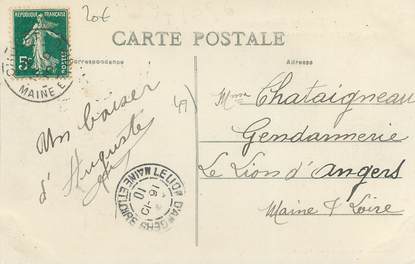 20€
CARTE POSTALE
Correspondance
Adresse
REPUBLIQUE FRANÇAISE
5c
POSTES
MAINE E
49
Un baiser
d'Auguste
Mme Chataigneau
Gendarmerie
Le Lion d'Angers
Maine & Loire
LE LION D'ANGERS
16-10
10
MAINE ET LOIRE